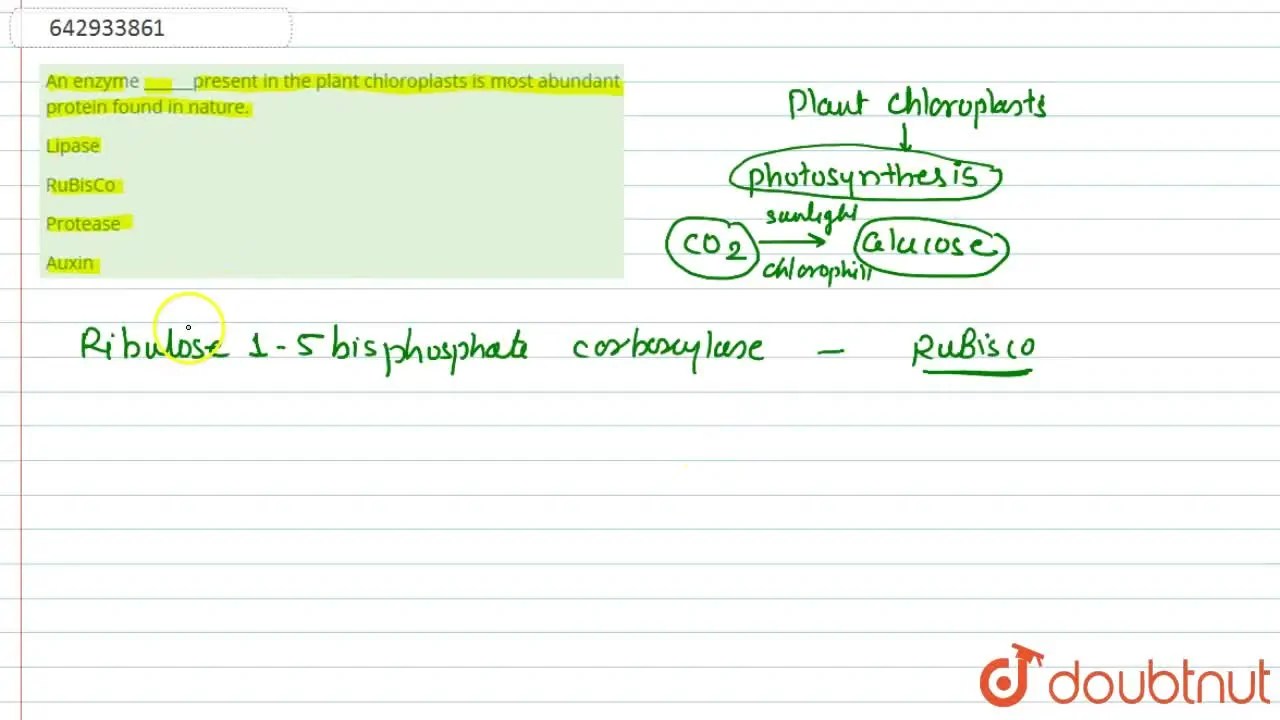 642933861
An enzyme _____present in the plant chloroplasts is most abundant
protein found in nature.
Lipase
RuBisCo
Protease
Auxin
Plant chloroplasts
photosynthesis
sunlight
CO2 → Glucose
chlorophill
Ribulose 1-5 bisphosphate carboxylase - RuBisCO
doubtnut